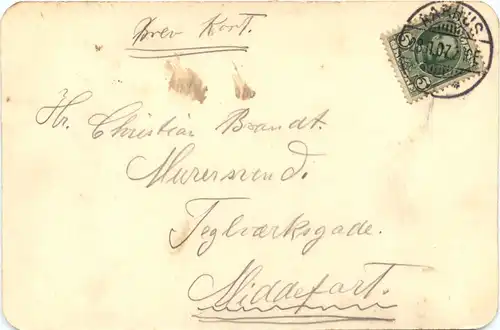 Brev Kort.
AARHUS
5 5
Hr. Christian Brandt.
Murersvend.
Teglværksgade.
Middelfart.